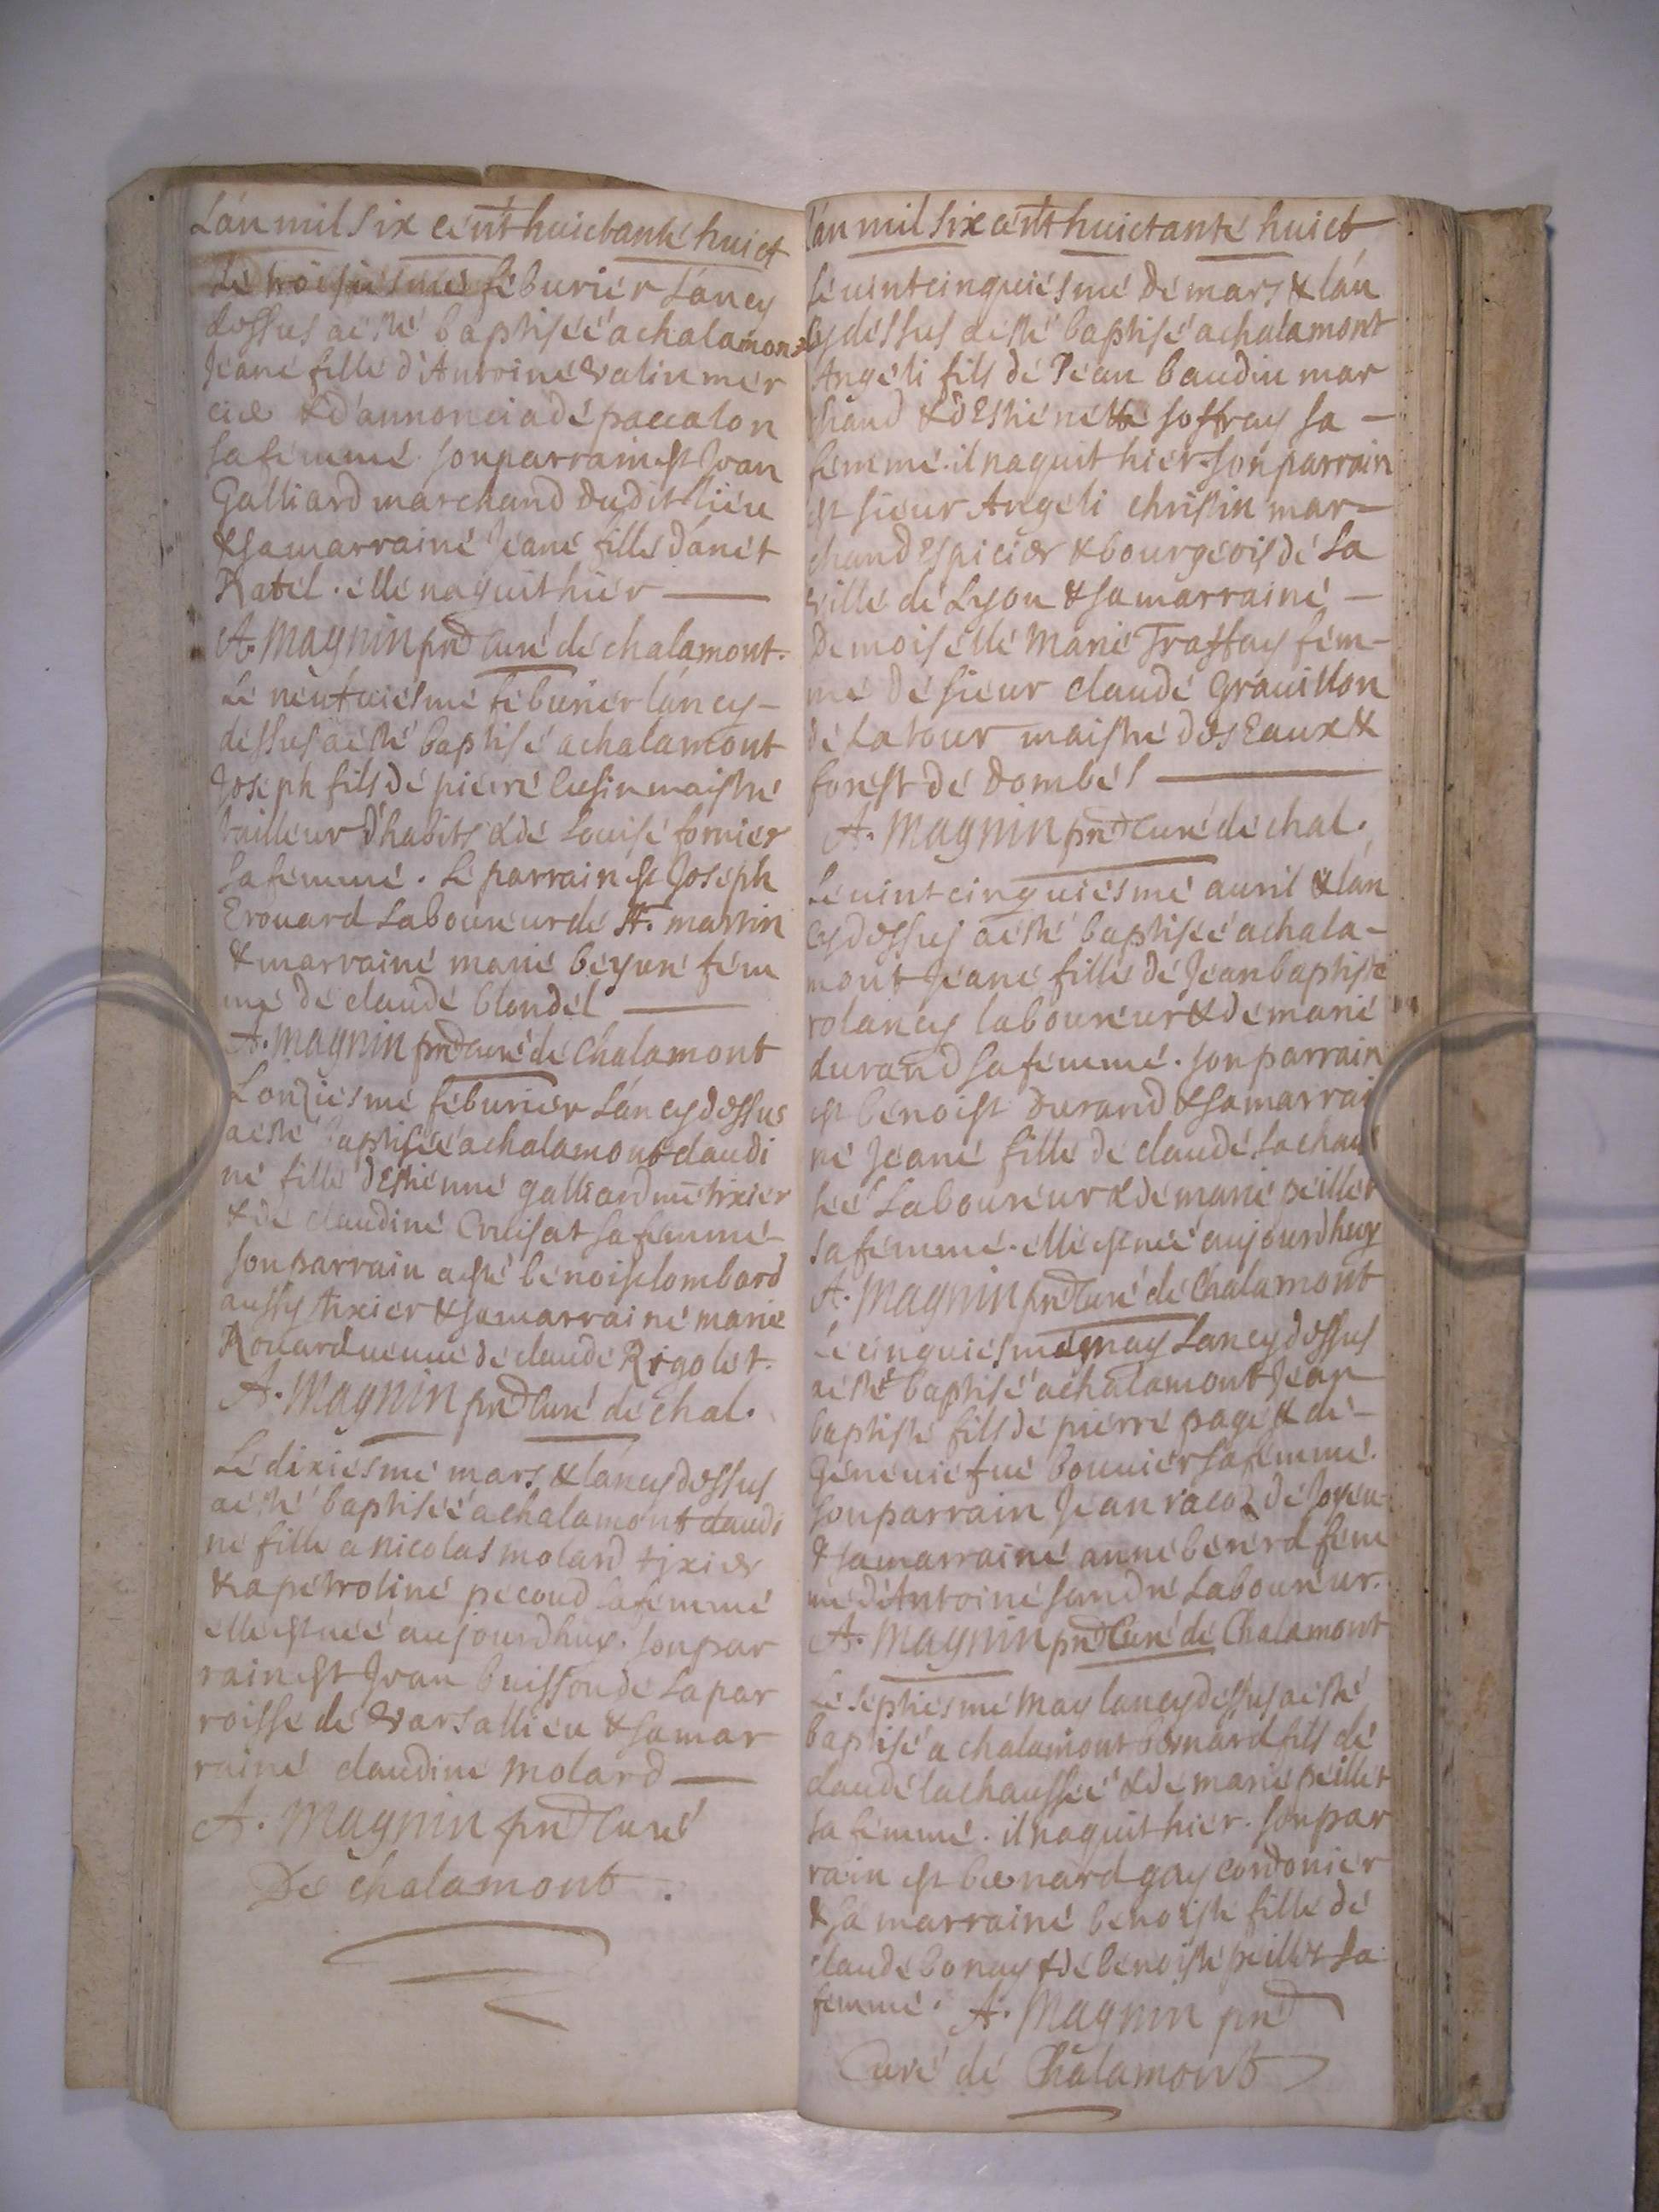 Lán mil six cént huictanté huict
Lé troisiésmé féburiér Láncy
dessus aésté baptiséé a chalamont
Jeané fillé d'Antoiné valin mér
cier & d'annonciadé paccalon
sa fémmé. son parrain est Jean
Galliard marchand dudit liéu
& sa marrainé Jeané fillé dánét
Ratél. éllé naquit hiér
A. Magnin pnt Curé dé chalamont.
Lé néufuiésmé féburiér láncy-
dessus aésté baptisé a chalamont
Joséph fils dé piérré cusin maistré
tailleur d'habits & dé Louisé forniér
sa fémmé. Lé parrain est Joséph
Erouard Laboureur dé St. martin
& marrainé marié béyné fém
mé dé claudé blondél
A. Magnin pnt curé dé Chalamont
Lonziésmé féburiér Láncy dessus
aésté baptiséé a chalamont claudi
né fillé d'Estiénné galliard mé tixiér
& dé claudiné Cruisat sa fémmé-
son parrain a esté bénoist lombard
aussy tixiér & sa marrainé marié
Rouard ueuué dé claudé Rigolét.
A. Magnin pnt Curé dé chal.
Lé dixiésmé mars & láncy dessus
aésté baptiséé a chalamont claudi
né fillé a nicolas molard tixier
& a pétroliné pécoud sa fémmé
éllé est néé aujourdhuy. son par
rain est Jean buisson dé La par
roissé dé Varsalliéu & sa mar
rainé claudiné Molard
A. Magnin pnt Curé
Dé chalamont.
Lán mil six cént huictanté huict
Lé uintcinquiésmé dé mars & lán
cy déssus aésté baptisé a chalamont
Angéli fils dé Jéan baudin mar
chand & d'Estiénétté soffray sa -
fémmé. il naquit hiér. son parrain
est siéur Angéli christin mar-
chand espicier & bourgéois dé La
villé dé Lyon & sa marrainé -
Démoiséllé Marié Traffay fém-
mé dé siéur claudé Grauillon
dé La tour maistré des Eaux &
forést dé Dombés
A. Magnin pnt Curé dé chal.
Lé uint cinquiésmé auril & lán
cy dessus aésté baptiséé a chala-
mont Jéané fillé dé Jéan baptisté
rolancy laboureur & dé marié
durand sa fémmé. son parrain
est bénoist durand & sa marrai
né Jéané fillé dé claudé Lachaus
séé Laboureur & dé marié péillét
sa fémmé. éllé est néé aujourdhuy
A. Magnin pnt Curé dé Chalamont
Lé cinquiésmé may Láncy dessus
aésté baptisé a chalamont Jéan
baptisté fils dé piérré pagé & dé-
Généuiéfué bouuiér sa fémmé.
son parrain Jéan racoz dé Joyeu
& sa marrainé anné bérérd fém
mé d'Antoiné sandré Laboureur.
A. Magnin pnt Curé dé Chalamont
Lé séptiésmé May láncy déssus aésté
baptisé a chalamont bernard fils dé
claudé lachausséé & dé marié péillét
sa fémmé. il naquit hiér. son par
rain est bernard gay cordoniér
& sa marrainé bénoisté fillé dé
claudé bonay & dé bénoisté péillét sa
fémmé. A. Magnin pnt
Curé dé Chalamont